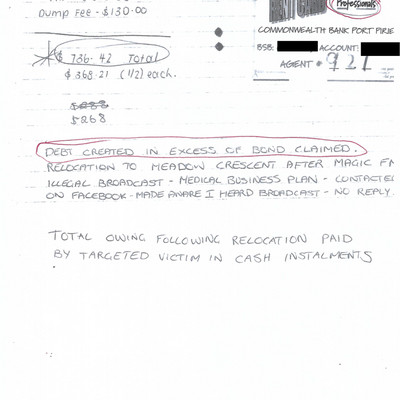 Dump Fee - $130.00
Professionals
COMMONWEALTH BANK PORT PIRIE
BSB: ACCOUNT:
AGENT # 921
$ 736.42 Total
$ 368.21 (1/2) each.
5268
DEBT CREATED IN EXCESS OF BOND CLAIMED.
RELOCATION TO MEADOW CRESCENT AFTER MAGIC FM
ILLEGAL BROADCAST - MEDICAL BUSINESS PLAN - CONTACTED
ON FACEBOOK - MADE AWARE I HEARD BROADCAST - NO REPLY
TOTAL OWING FOLLOWING RELOCATION PAID
BY TARGETED VICTIM IN CASH INSTALMENTS